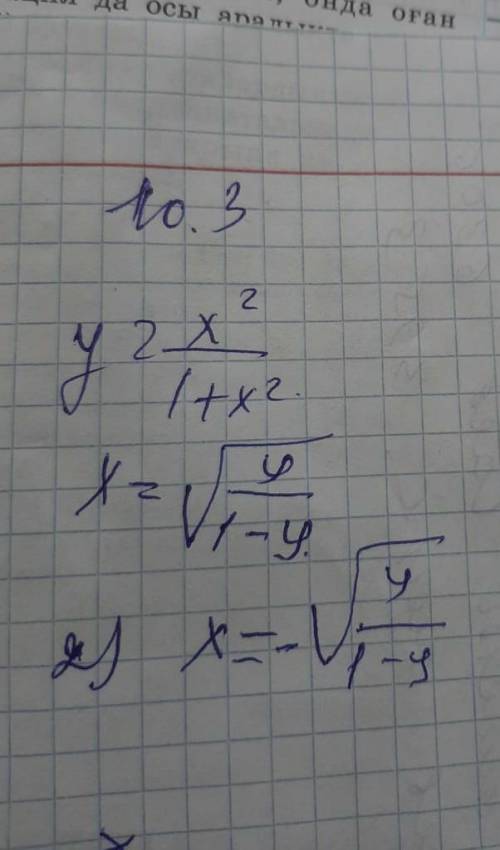 да осы
онда оған
10.3
y = x² / 1+x²
x = √(y / 1-y)
x = -√(y / 1-y)